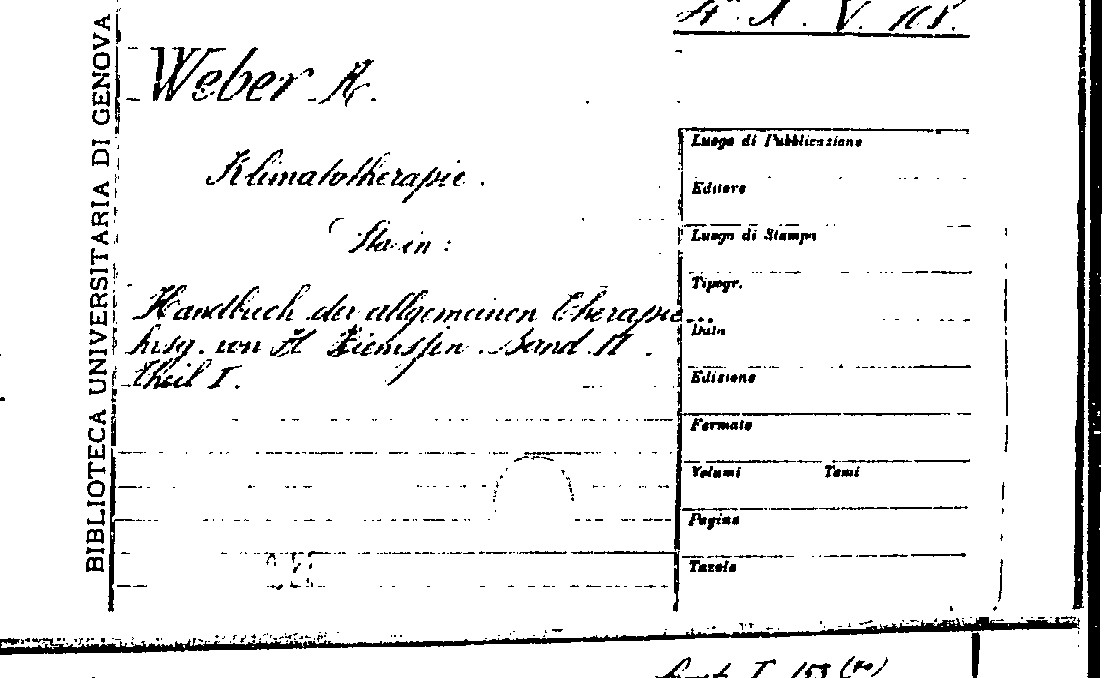 4ª A. V. 108.
BIBLIOTECA UNIVERSITARIA DI GENOVA
Weber H.
Klimatotherapie.
Sta in:
Handbuch der allgemeinen Therapie...
hrsg. von H Ziemssen Band II.
Theil I.
Luogo di Pubblicazione
Editore
Luogo di Stampa
Tipogr.
Data
Edizione
Formato
Volumi Tomi
Pagine
Tavole